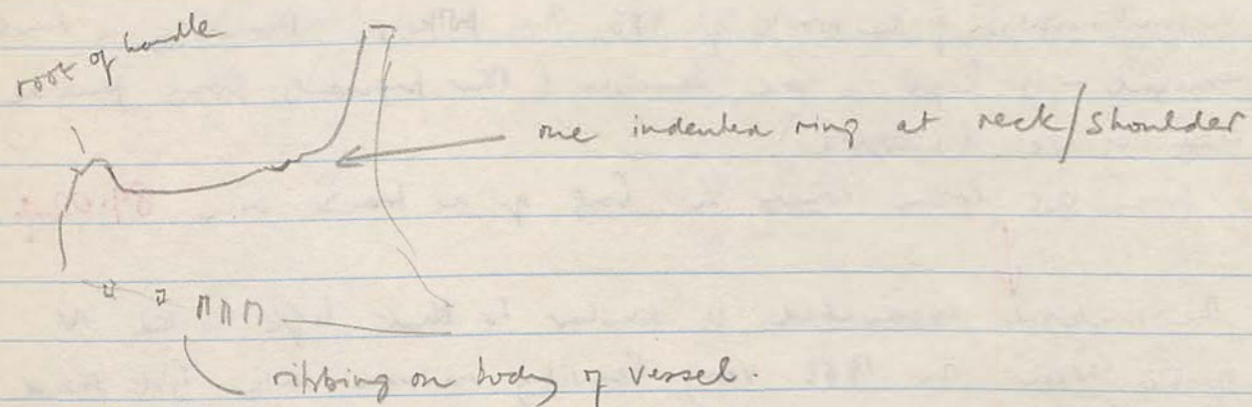 root of handle
one indented ring at neck/shoulder
ribbing on body of vessel.